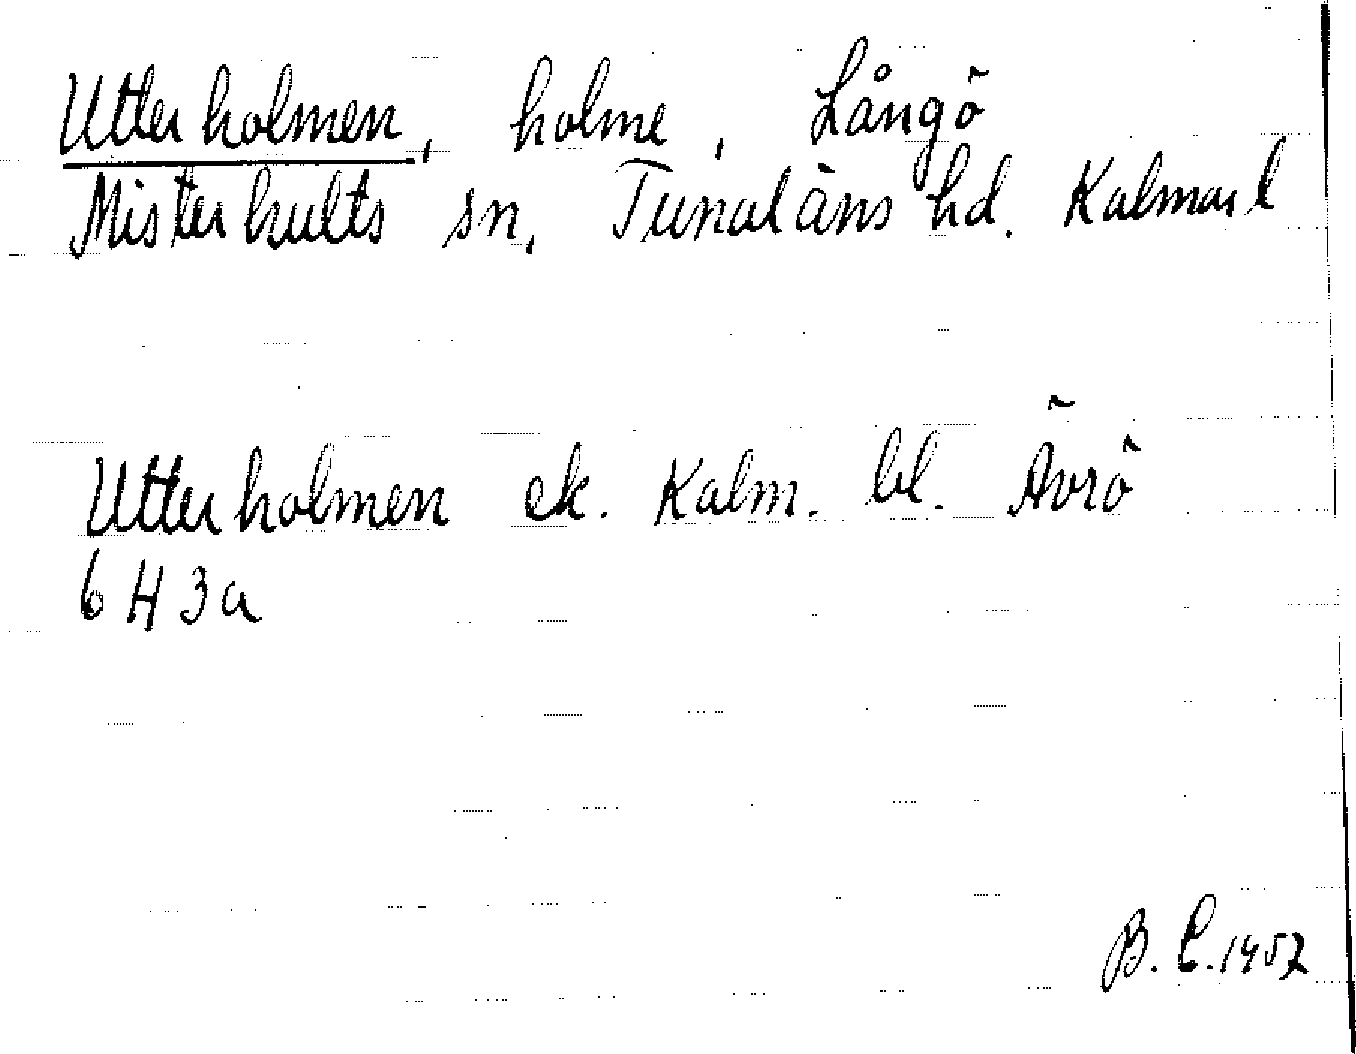 Utterholmen, holme, Långö
Misterhults sn, Tunaläns hd. Kalmar l
Utterholmen ek. Kalm. bl. Ävrö
6 H 3a
B. E. 1957